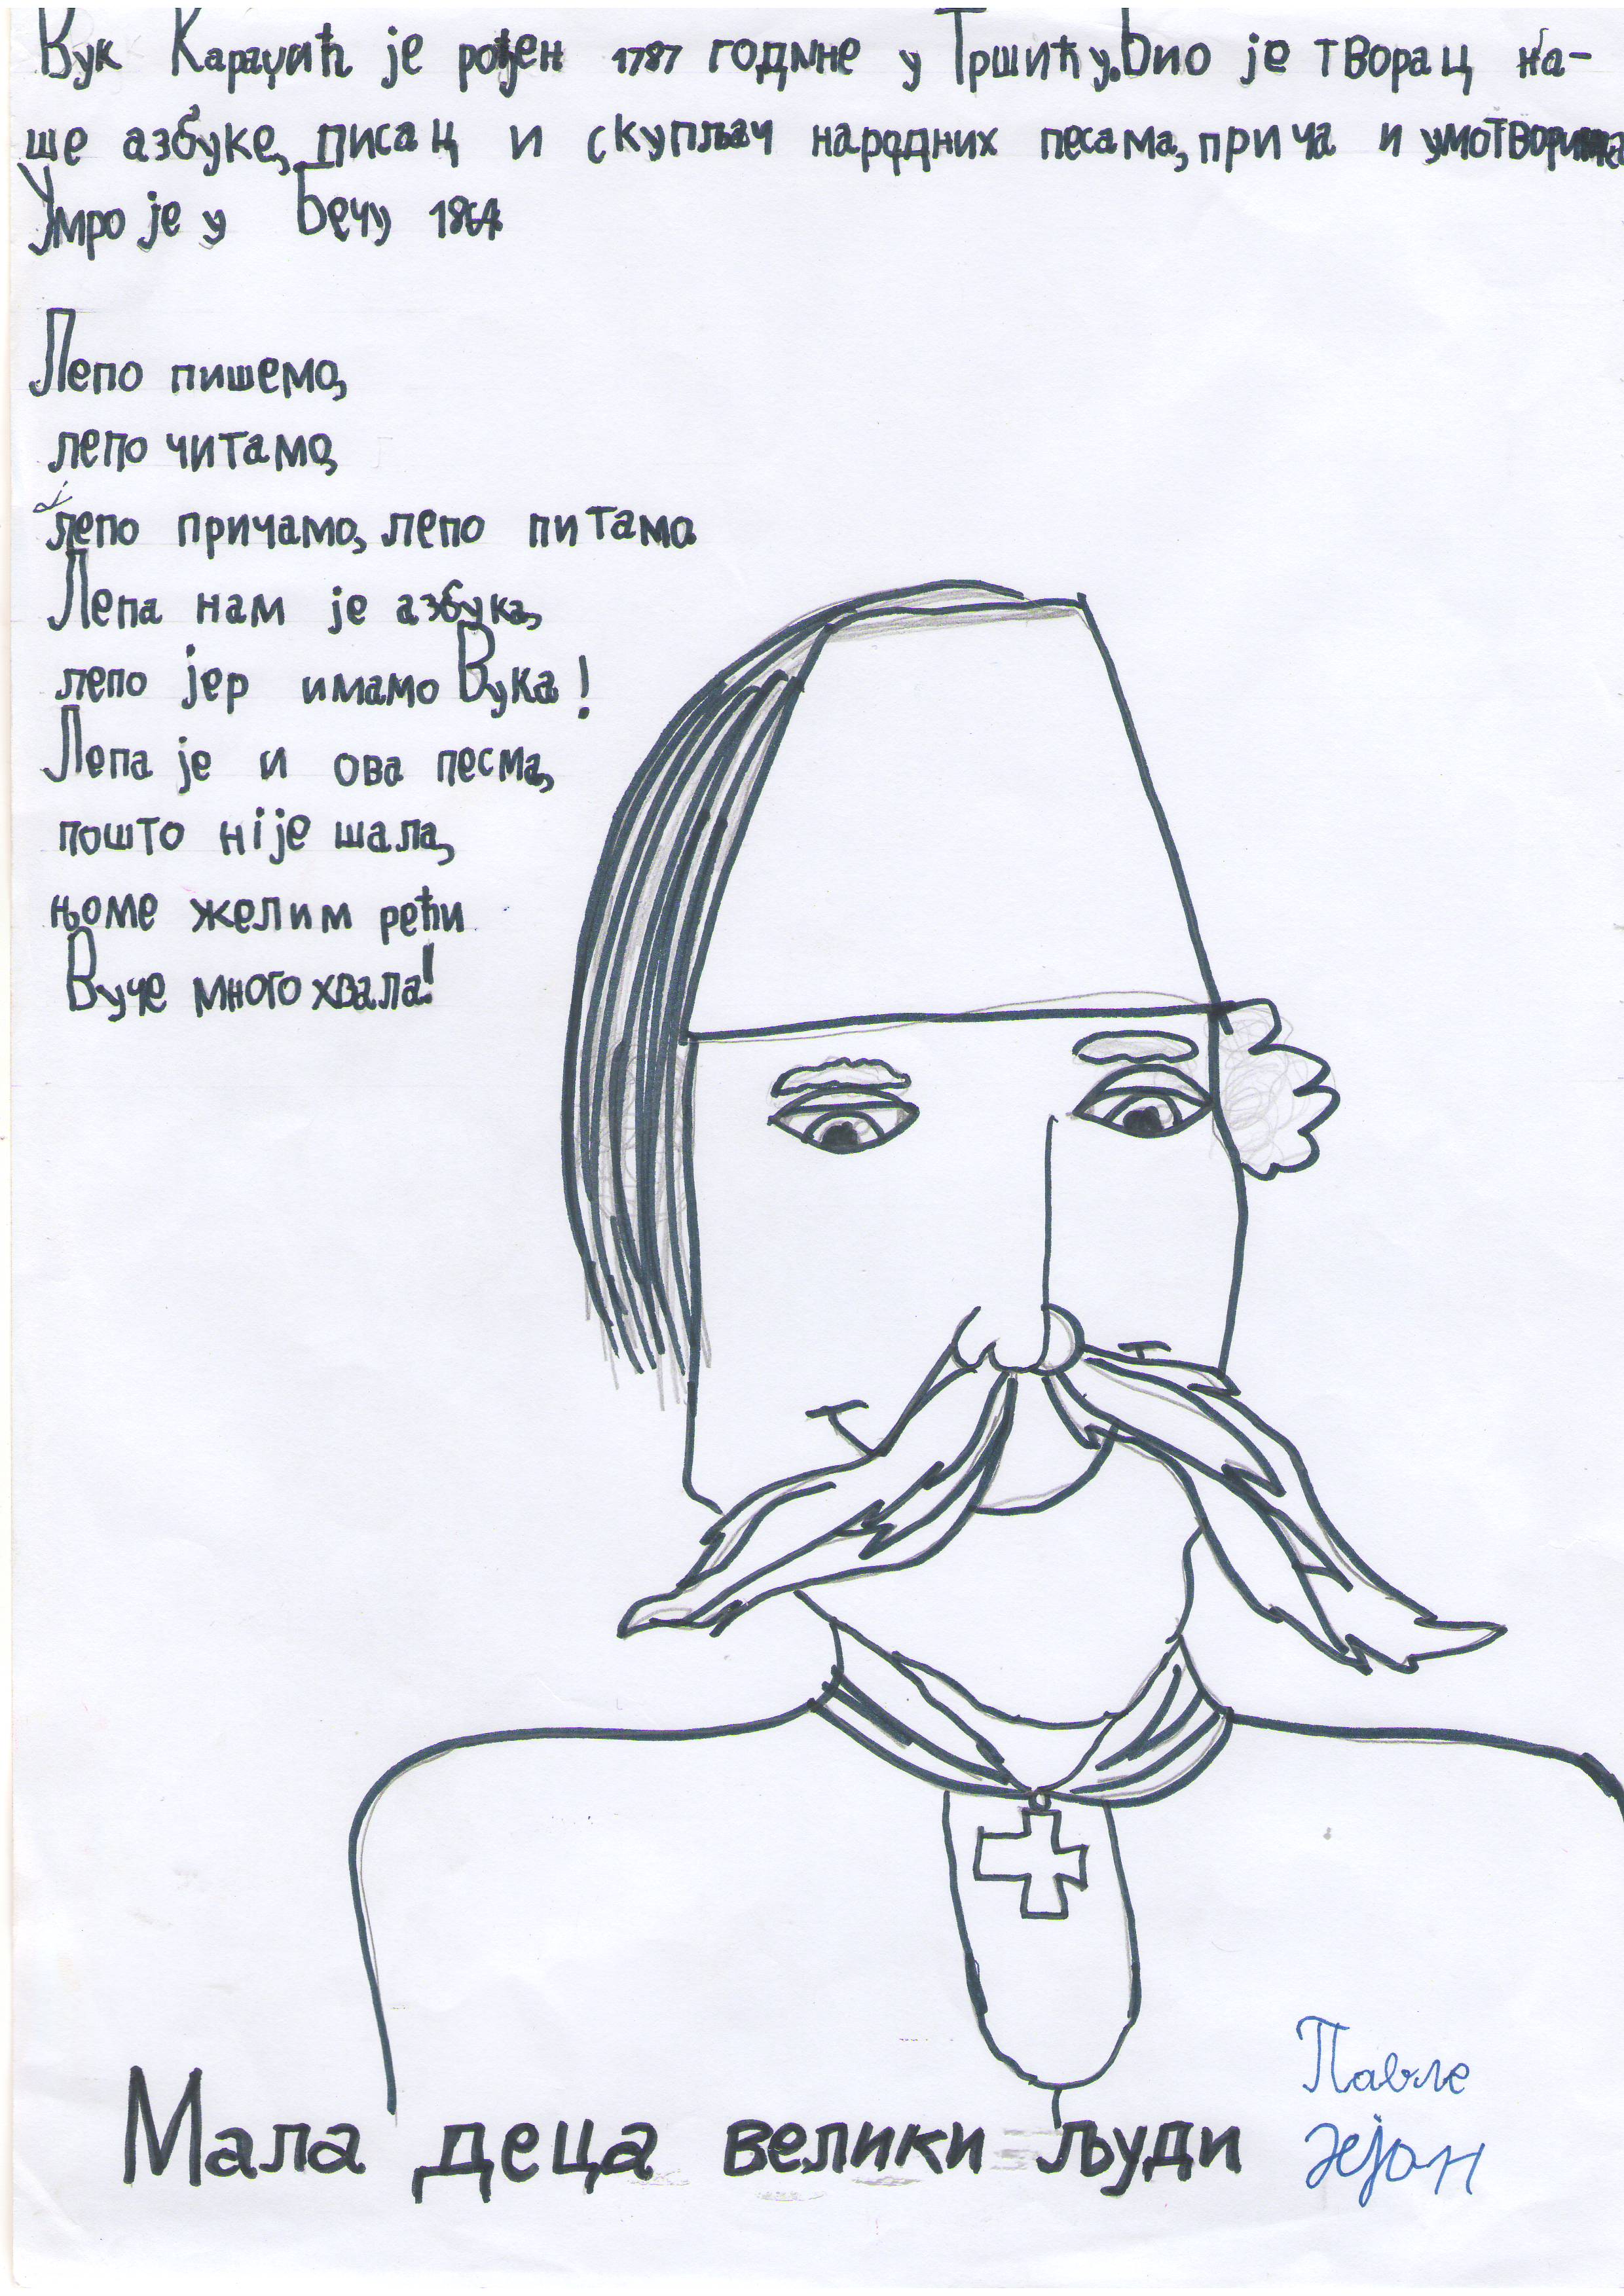 Вук Караџић је рођен 1787 године у Тршићу. Био је творац на-
ше азбуке, писац и скупљач народних песама, прича и умотворина
Умро је у Бечу 1864
Лепо пишемо,
лепо читамо,
лепо причамо, лепо питамо
Лепа нам је азбука,
лепо јер имамо Вука!
Лепа је и ова песма,
пошто није шала,
њоме желим рећи
Вуче много хвала!
Мала деца велики људи
Павле